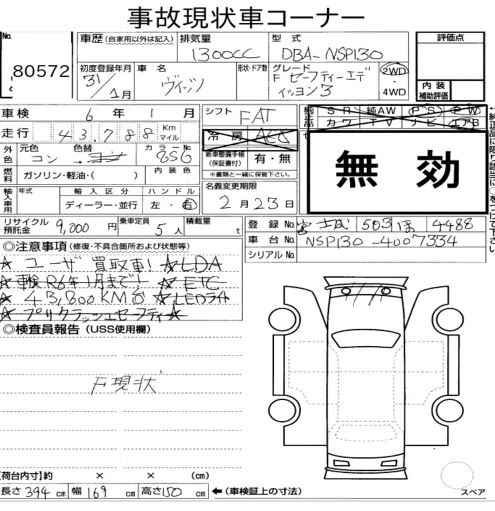 事故現状車コーナー
No.
80572
車歴 (自家用以外は記入)
排気量
1300CC
型式
DBA-NSP130
評価点
初度登録年月
31/1月
車名
ヴィッツ
形状・ドア数
グレード
F セーフティーエディッション3
2WD
・4WD
内装
補助評価
車検 6年1月
シフト FAT
冷房 AAC
純正品
SR 純AW PS PW
カワ TV ナビ エアB
走行 43,788 Km
マイル
外色
元色
コン
色替
カラーNo.
856
燃料
ガソリン・軽油・( )
内装色
新車整備手帳
(保証書付)
有・無
※書類と一緒に保管して下さい。
無効
輸入車用
年式
輸入区分
ディーラー・並行
ハンドル
左・右
名義変更期限
2月23日
リサイクル預託金
9,000円
乗車定員
5人
積載量
t
登録No.
503 ほ 4488
車台No.
NSP130-4007334
シリアルNo.
◎注意事項 (修復・不具合箇所および状態等)
★ユーザー買取車! ★LDA
★車検R6年1月まで! ★ETC
★43,800KM台 ★LEDライト
★プリクラッシュセーフティー★
◎検査員報告 (USS使用欄)
F現状
【荷台内寸】約 × × (cm)
長さ 394 cm 幅 169 cm 高さ 150 cm
←(車検証上の寸法)
スペア